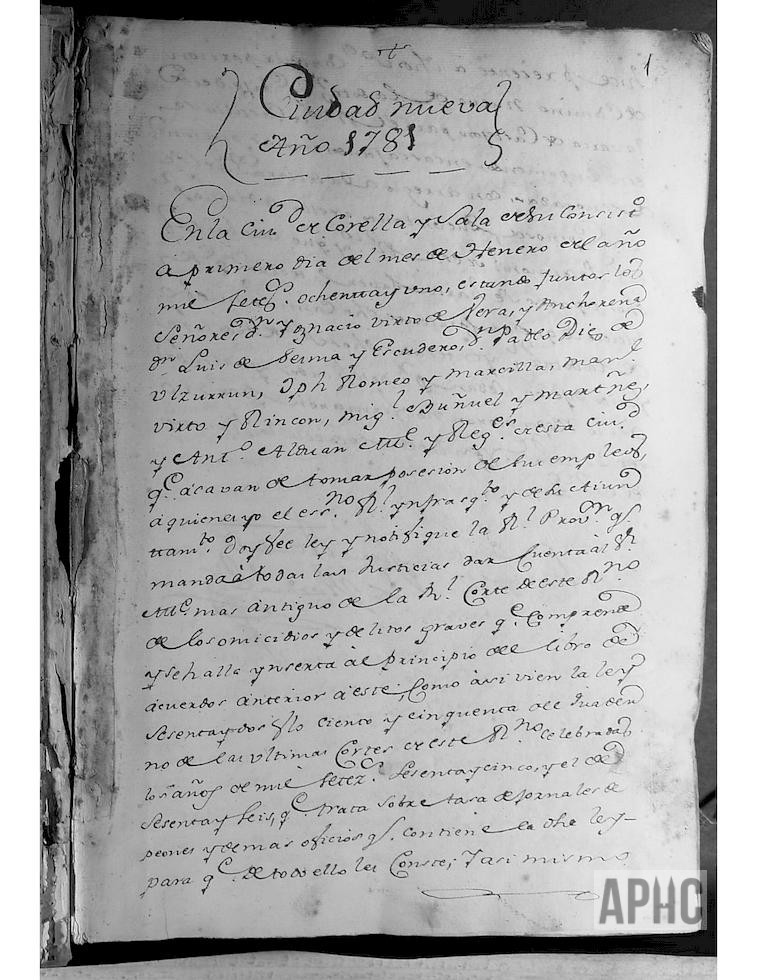 +
1
Ciudad nueva
Año 1781
En la Ciud. de Corella y Sala de su Consistº
a primero dia del mes de Henero del año
mil setecs. ochenta y uno, estando Juntos los
Señores, Dn. Ygnacio Virto de Vera, y Anchorena
dn. Luis de Sesma y Escudero, Dn. Pablo Diez de
Ulzurrun, Jph Romeo y Marcilla, Manl.
Virto y Rincon, Migl. Buñuel y Martñez,
y Antº. Alduan Alle. y Reges. de esta Ciud.
qe. acavan de tomar posesion de sus empleos,
a quienes yo el essno. Rl. ynfrasqto. y de su Aiun
ttamto. Doy fee ley y notifique la Rl. Provon. qe.
manda à todas las Justicias dar Cuenta àl Sr.
Alle. mas antiguo de la Rl. Corte de este Rno.
de los omicidios y delitos graves qe. Comprende
y se halla ynserta àl principio del libro de
acuerdos anterior a este, Como àsi vien la ley
sesenta y dos flo ciento y cinquenta del quader
no de las ultimas Cortes de este Rno. Celebradas
los años de mil setezs. sesenta y cinco, y el de
sesenta y seis, qe. trata sobre tasa de Jornales de
peones y demas oficios qe. contiene la dha ley
para qe. de todo ello les Conste; Y asi mismo
APHC